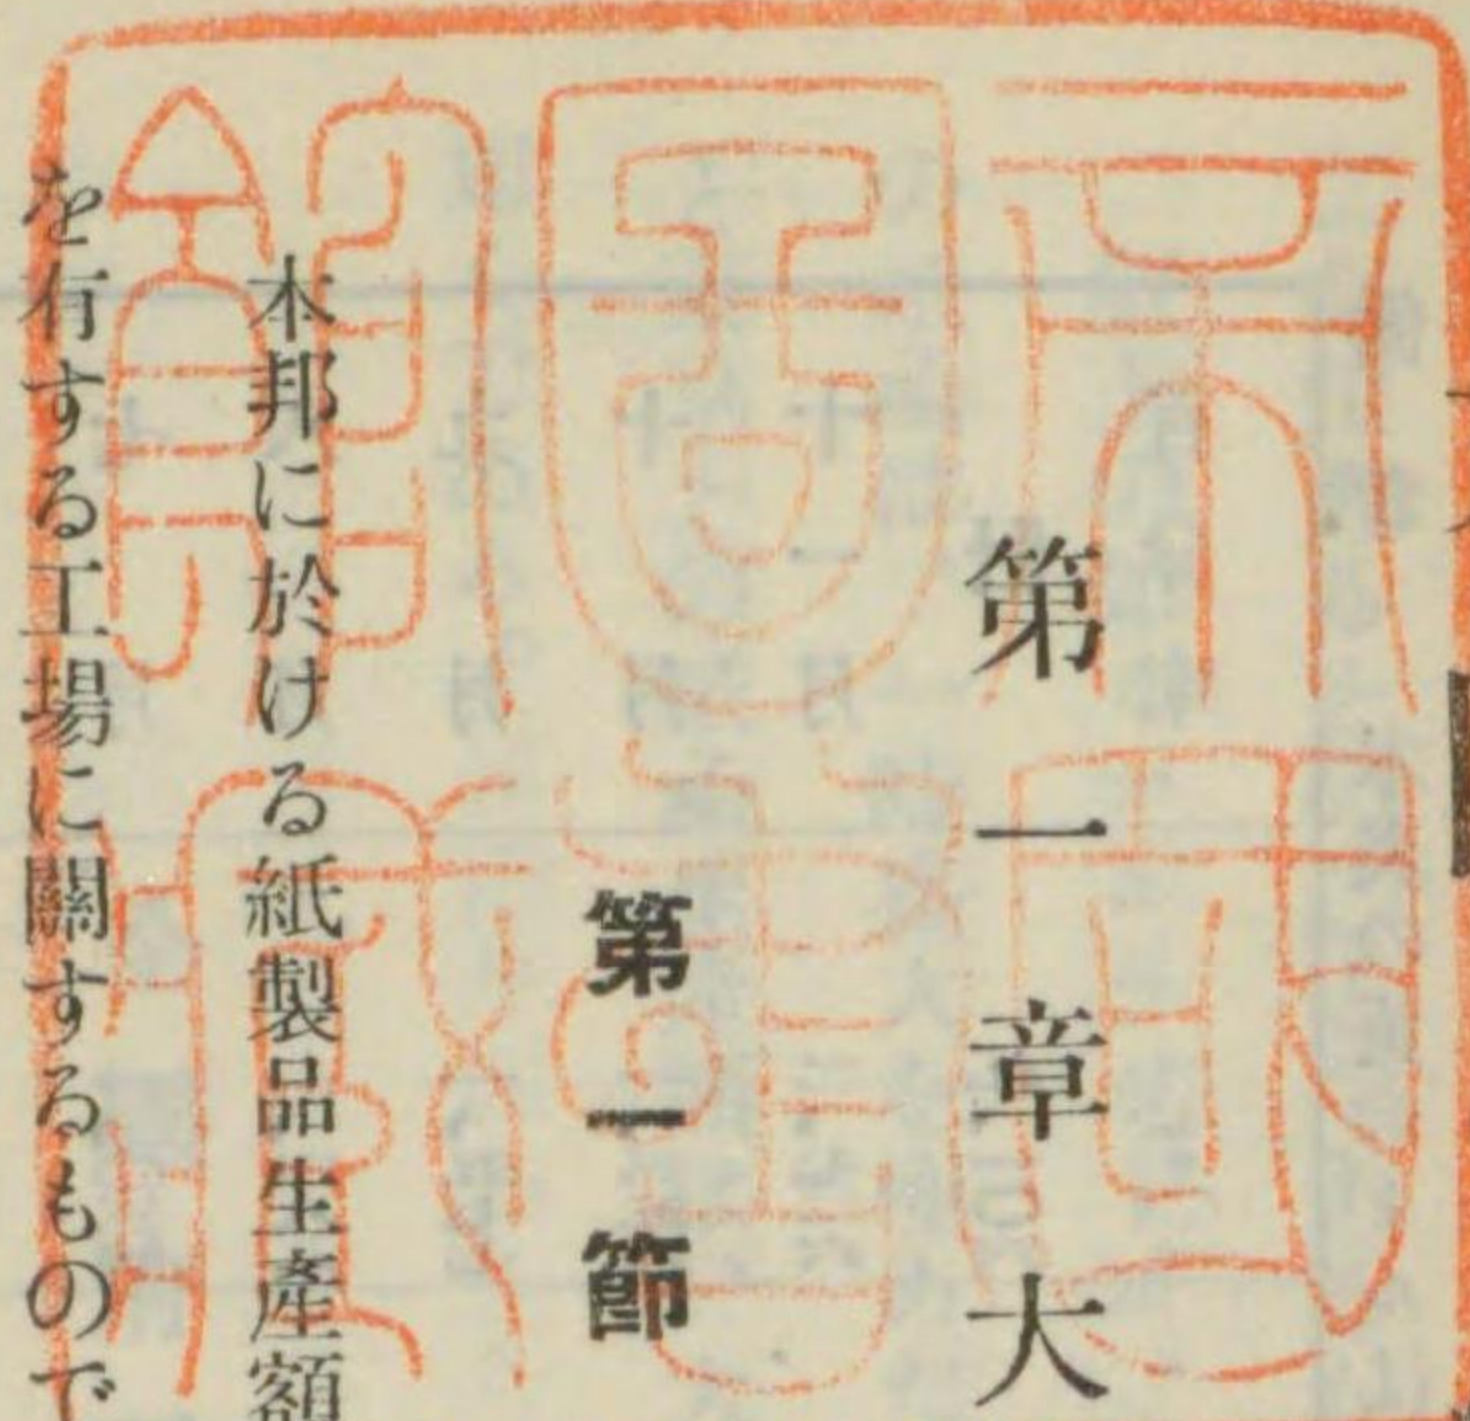 帝國
圖書
館藏
第一章大
第一節
本邦に於ける紙製品生產額
を有する工場に關するもので